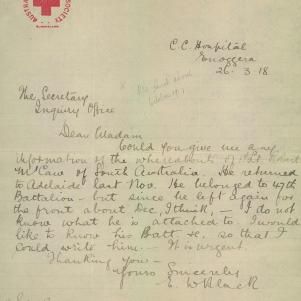 AUSTRA
SOCIETY
C.C. Hospital
Enoggera
26.3.18
The Secretary
Inquiry Office
Dear Madam
Could you give me any
information of the whereabouts of Lt. Robert
McCaw of South Australia. He returned
to Adelaide last Nov. He belonged to 47th
Battalion – but since he left again for
the front about Dec, I think, – I do not
know what he is attached to. I would
like to know his Batt. &c. so that I
could write him. – It is urgent.
Thanking you –
Yours Sincerely
E. W Black